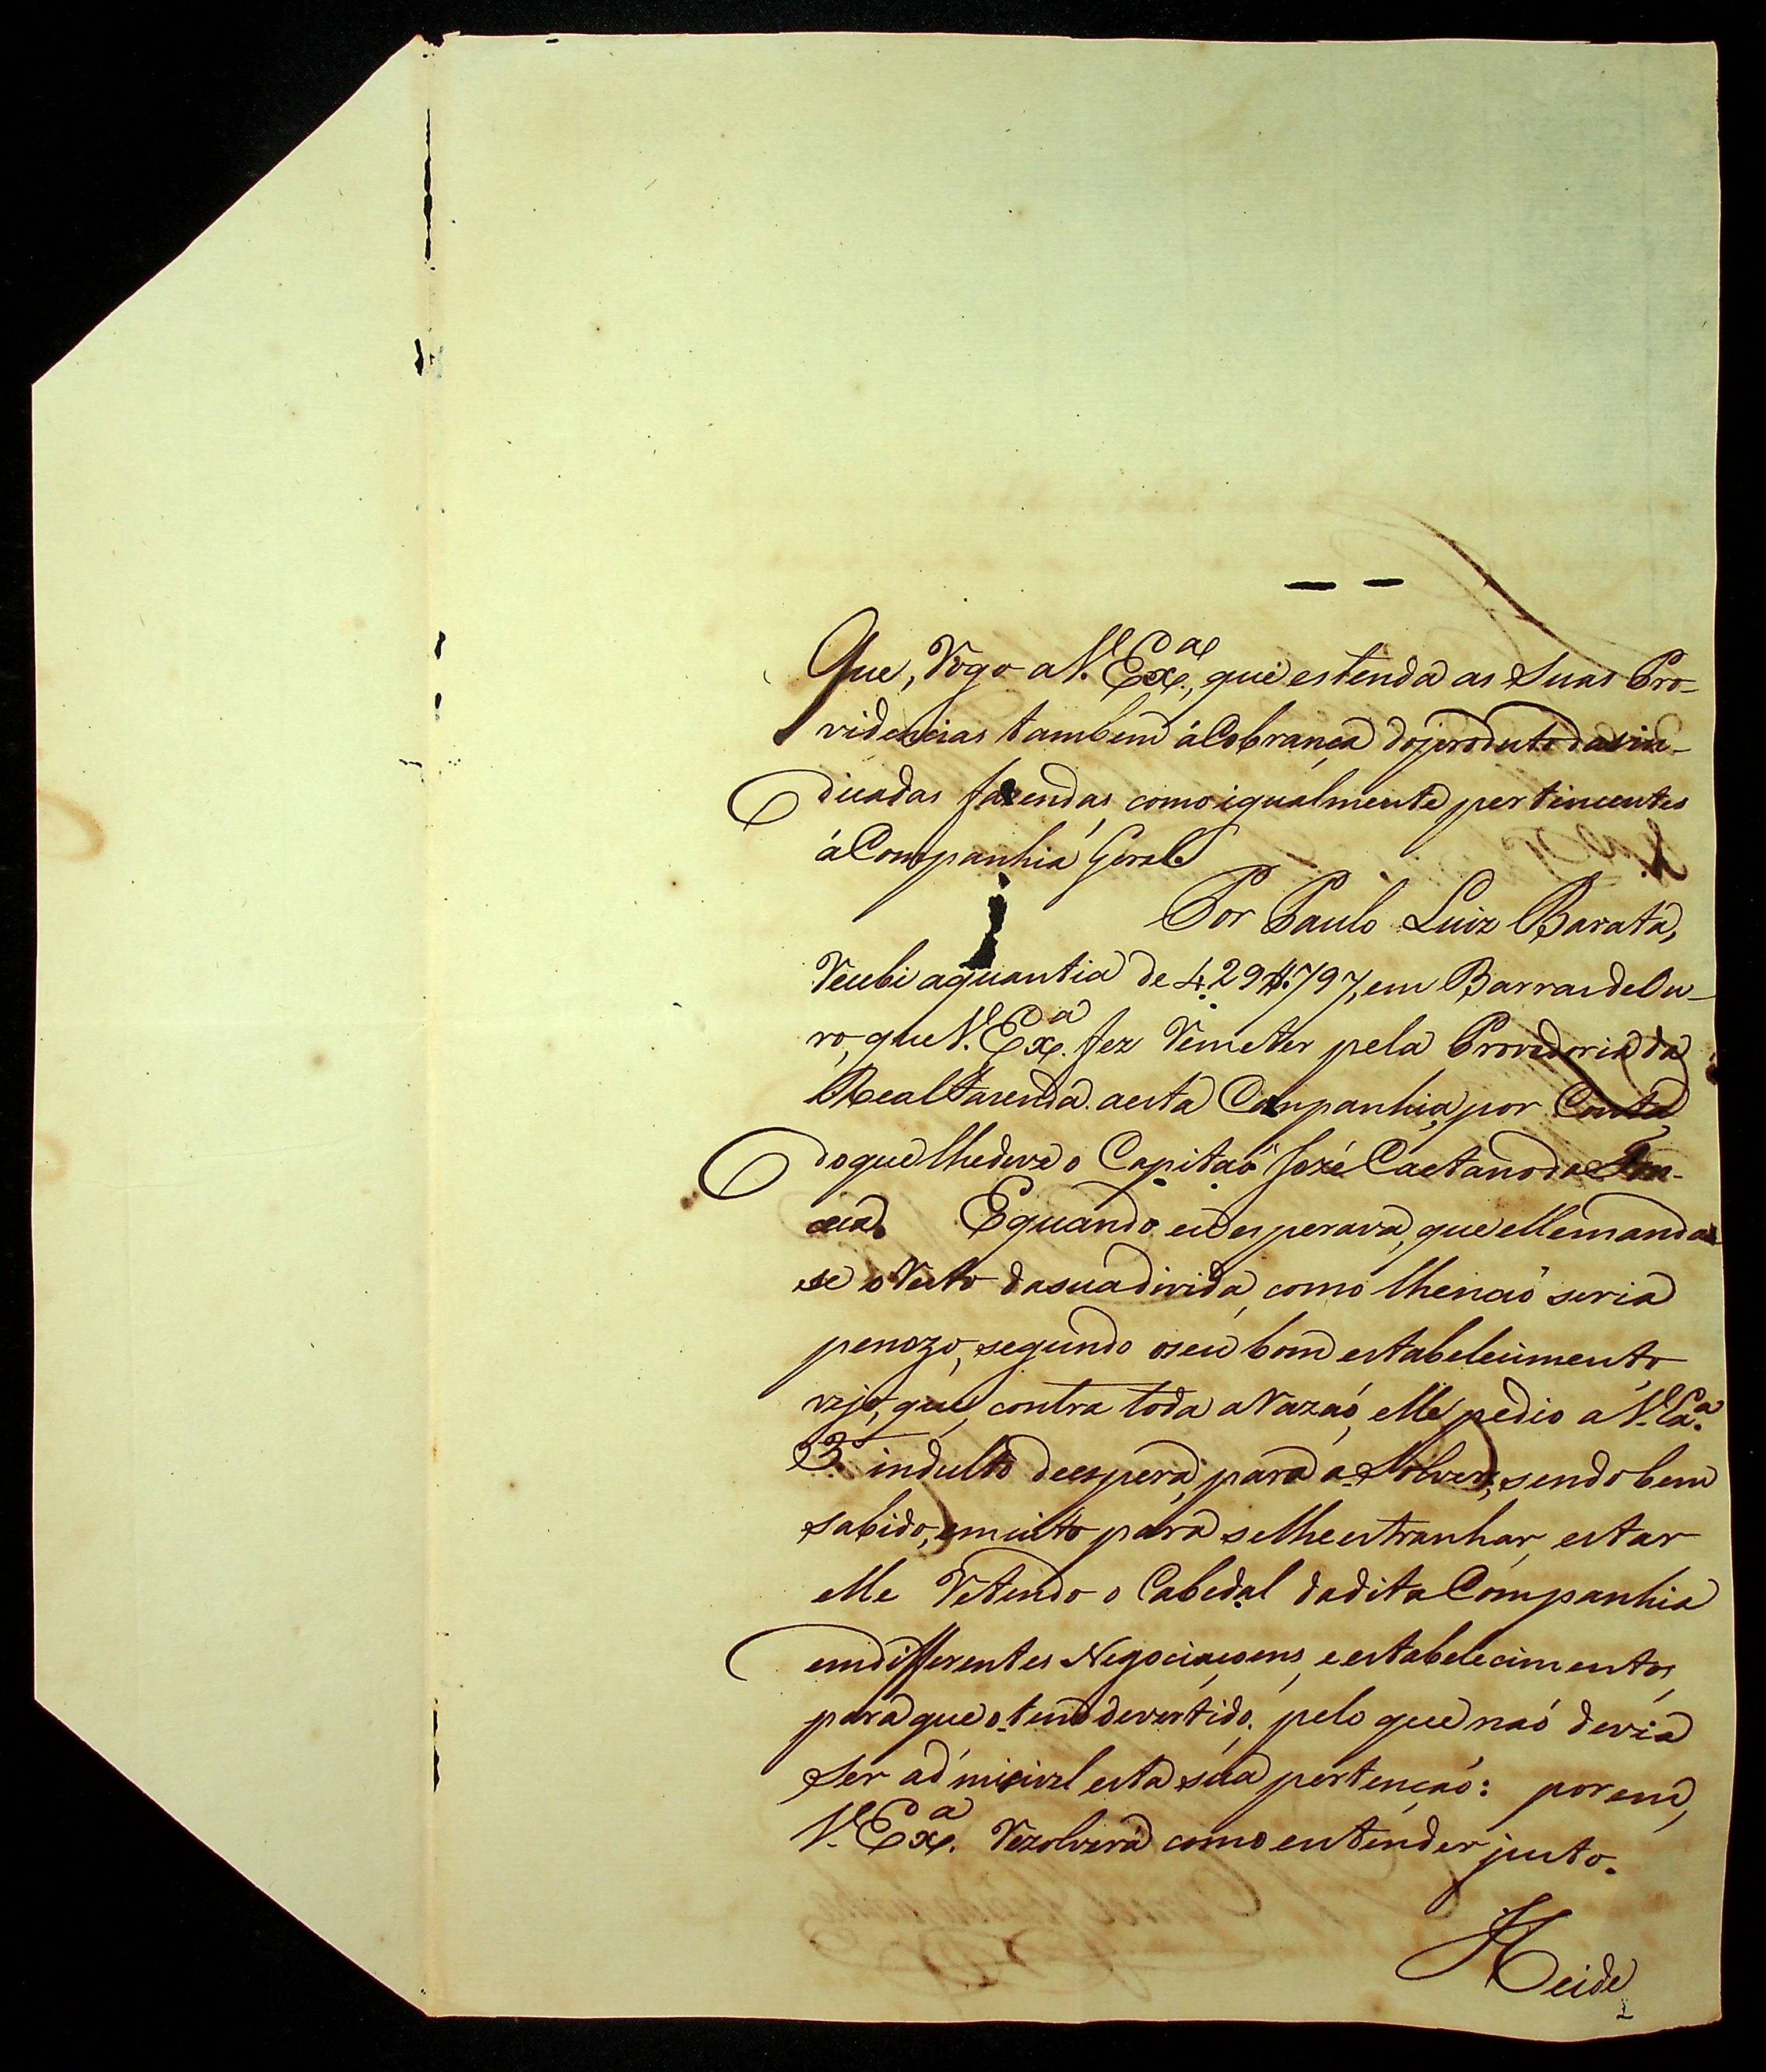 Que, rogo a V. Ex.ª, que estenda as suas Pro-
videncias tambem á Cobrança do produto das in-
dicadas fazendas, como igualmente pertencentes
á Companhia Geral.
Por Paulo Luiz Barata,
recebi a quantia de 4.29 797, em Barras de Ou-
ro, que V. Ex.ª fez remeter pela Provedoria da
Real Fazenda a esta Companhia, por Conta
do que lhe deve o Capitaõ Jozé Caetano da
E quando eu esperava, que elle manda-
se o resto da sua divida, como lhe naõ seria
penozo, segundo o seu bom estabelecimento,
vejo, que, contra toda a razaõ, elle pedio a V. Ex.ª
indulto de espera, para a solver, sendo bem
sabido, e muito para se lhe estranhar, estar
elle retendo o Cabedal da dita Companhia
em differentes Negociaçoens, e estabelecimentos,
para que o tem devertido, pelo que naõ devia
ser admicivel esta sua pertençaõ: porem,
V. Ex.ª rezolverá como entender justo.